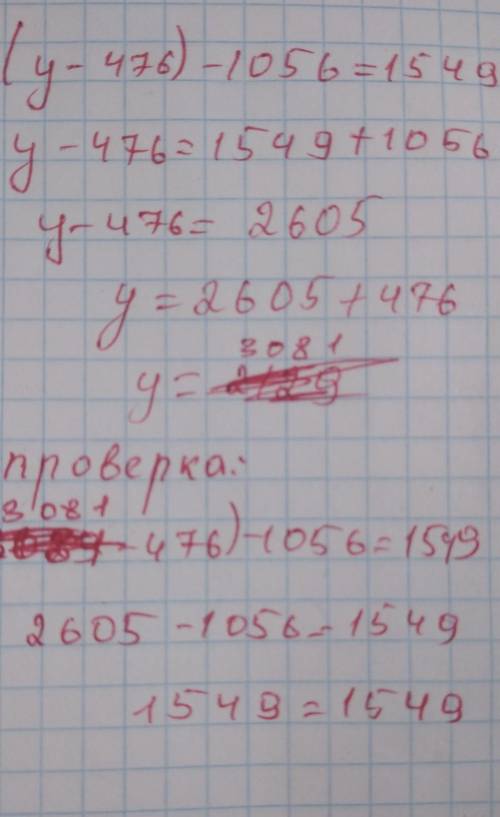 (y - 476) - 1056 = 1549
y - 476 = 1549 + 1056
y - 476 = 2605
y = 2605 + 476
y = 3081
проверка:
3081 - 476) - 1056 = 1549
2605 - 1056 = 1549
1549 = 1549